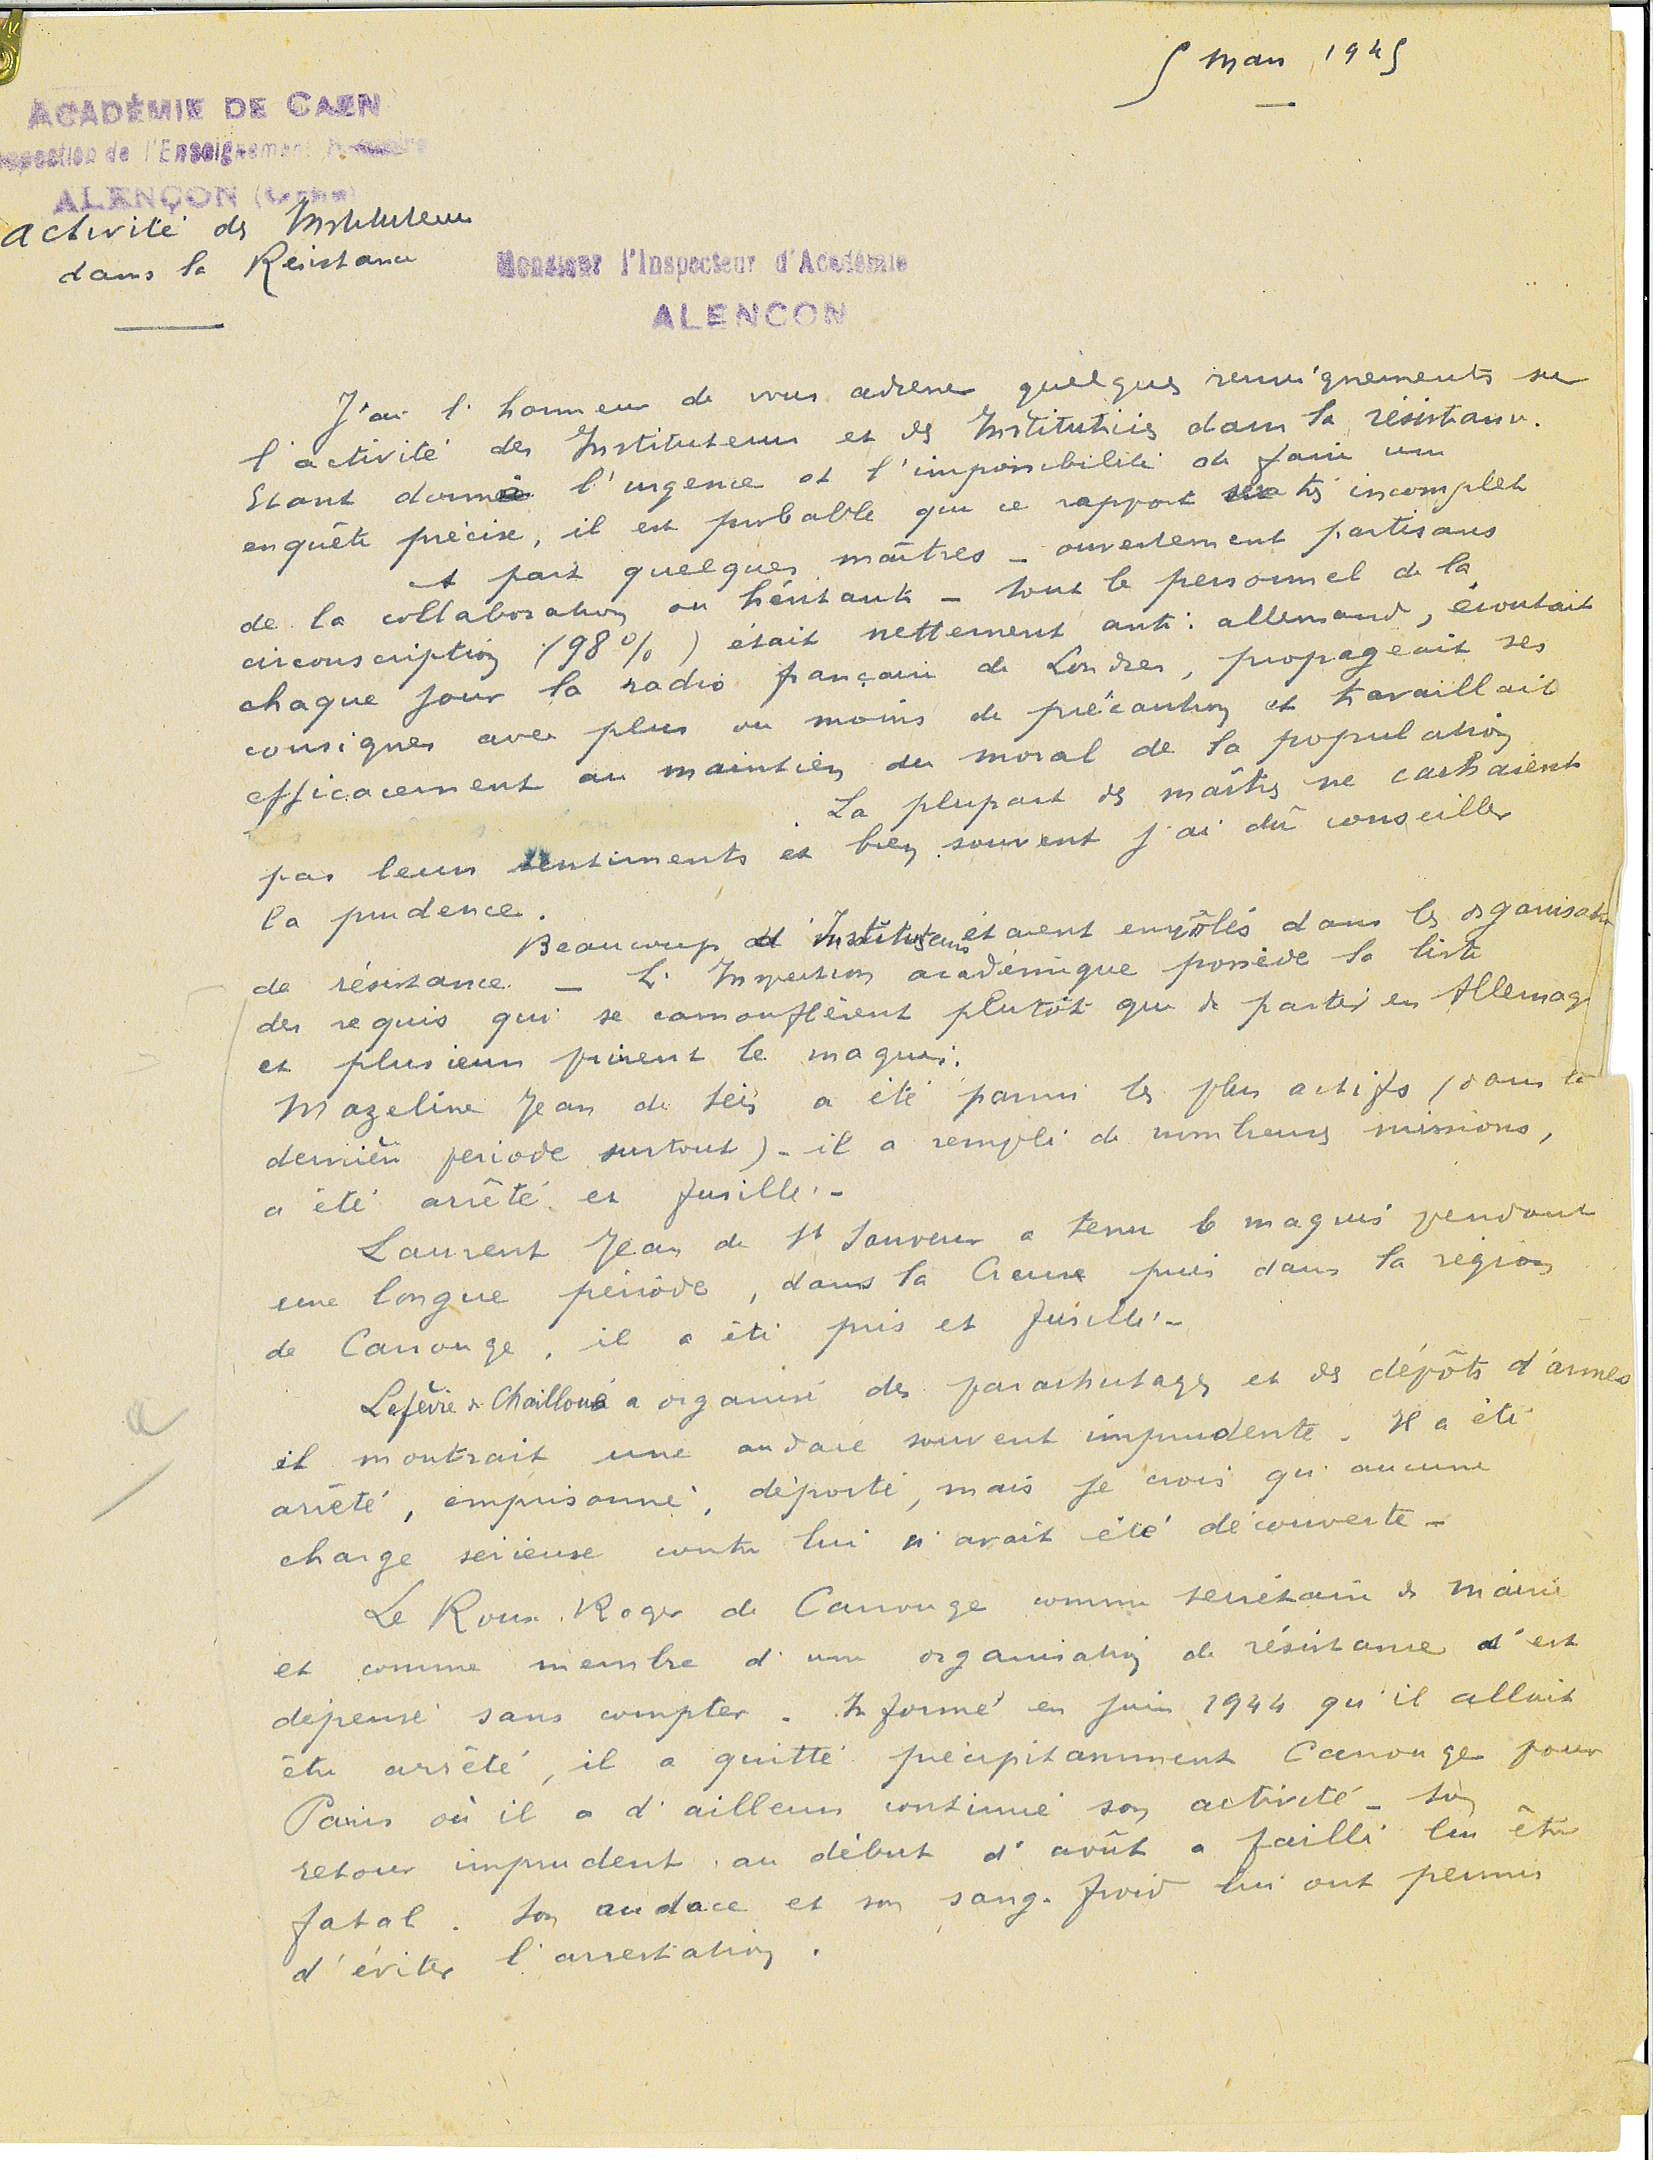 5 mars 1945
ACADÉMIE DE CAEN
Inspection de l'Enseignement Primaire
ALENÇON (Orne)
Activité des Instituteurs
dans la Résistance
Monsieur l'Inspecteur d'Académie
ALENCON
J'ai l'honneur de vous adresser quelques renseignements sur
l'activité des Instituteurs et des Institutrices dans la résistance.
Etant donnée l'urgence et l'impossibilité de faire une
enquête précise, il est probable que ce rapport sera très incomplet
A part quelques maîtres – ouvertement partisans
de la collaboration ou hésitants – tout le personnel de la
circonscription (98%) était nettement anti-allemand, écoutait
chaque jour la radio française de Londres, propageait ses
consignes avec plus ou moins de précaution et travaillait
efficacement au maintien du moral de la population
La plupart des maîtres ne cachaient
pas leurs sentiments et bien souvent j'ai dû conseiller
la prudence.
Beaucoup d'Instituteurs étaient enrôlés dans les organisations
de résistance – L'Inspection académique possède la liste
des requis qui se camouflèrent plutôt que de partir en Allemagne
et plusieurs prirent le maquis.
Mazeline Jean de Sées a été parmi les plus actifs (dans la
dernière période surtout) – il a rempli de nombreuses missions,
a été arrêté et fusillé –
Laurent Jean de St Sauveur a tenu le maquis pendant
une longue période, dans la Creuse puis dans la région
de Carrouge, il a été pris et fusillé –
Lefèvre de Chailloué a organisé des parachutages et des dépôts d'armes
il montrait une audace souvent imprudente. Il a été
arrêté, emprisonné, déporté, mais je crois qu'aucune
charge sérieuse contre lui n'avait été découverte –
Le Roux Roger de Carrouge comme secrétaire de Mairie
et comme membre d'une organisation de résistance s'est
dépensé sans compter. Informé en juin 1944 qu'il allait
être arrêté, il a quitté précipitamment Carrouge pour
Paris où il a d'ailleurs continué son activité – Son
retour imprudent au début d'août a failli lui être
fatal. Son audace et son sang-froid lui ont permis
d'éviter l'arrestation.